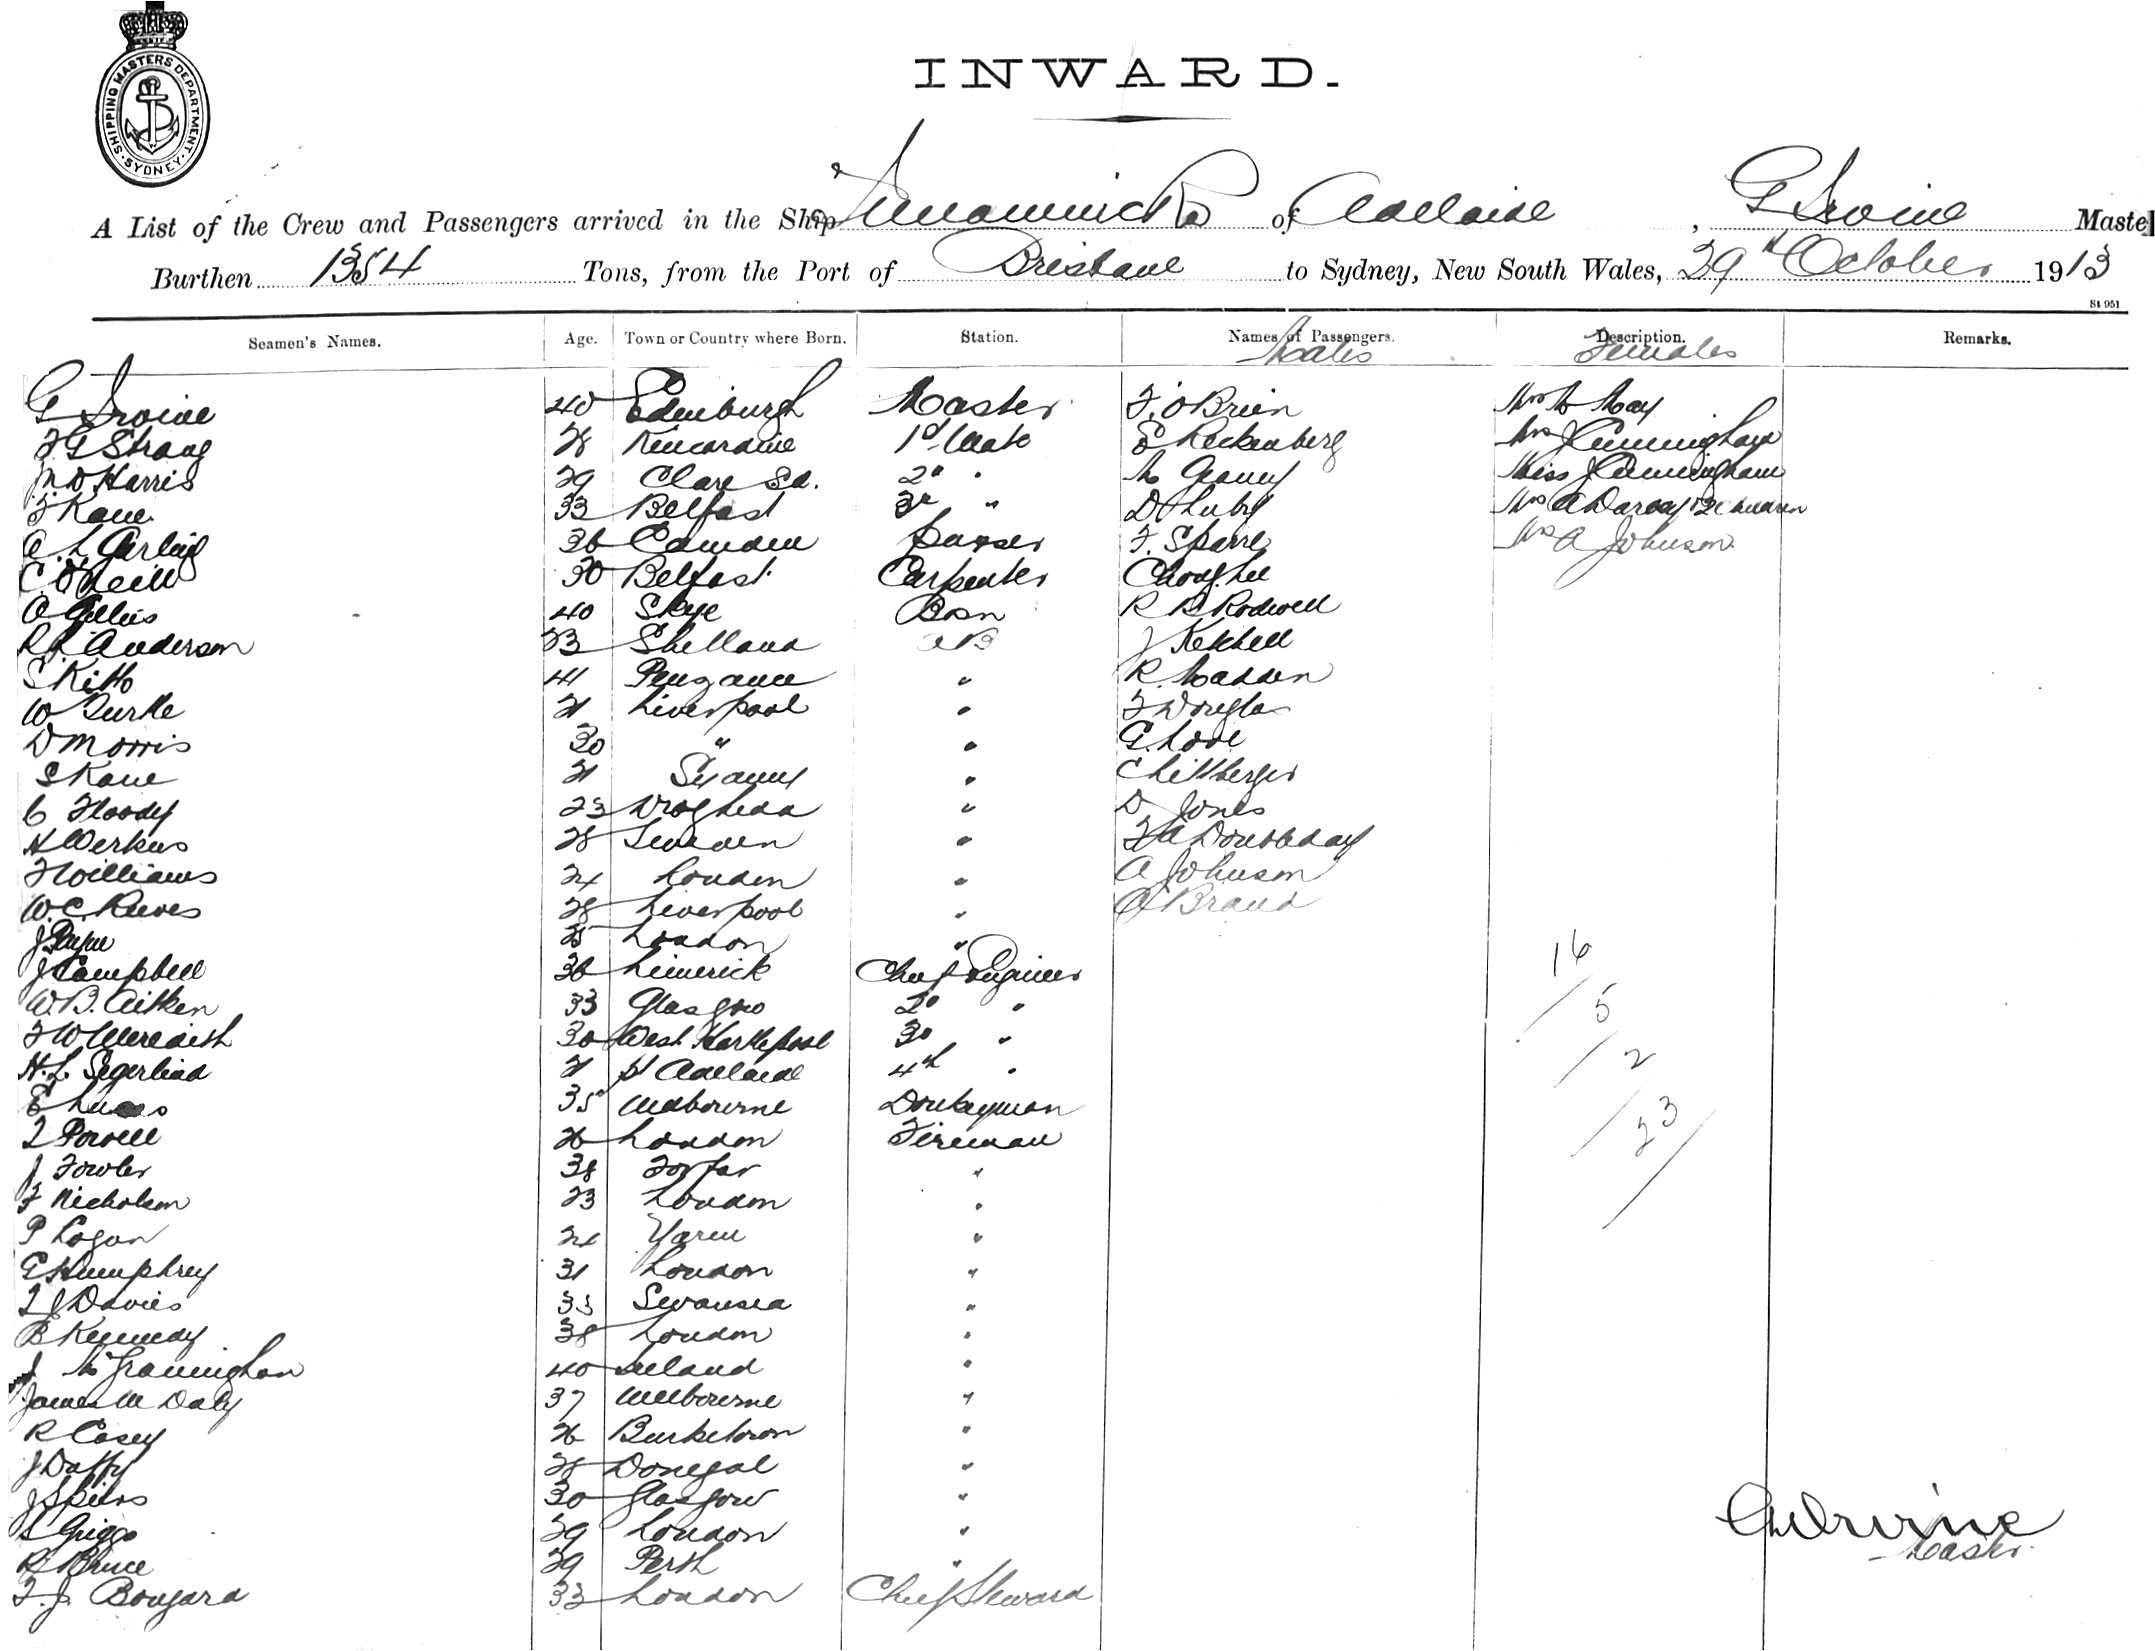 SHIPPING MASTERS DEPARTMENT · SYDNEY ·
INWARD.
A List of the Crew and Passengers arrived in the Ship Innamincka of Adelaide, G Irvine Master
Burthen 1354 Tons, from the Port of Brisbane to Sydney, New South Wales, 29th October 1913
St 951
Seamen's Names. Age. Town or Country where Born. Station. Names of Passengers. Description. Remarks.
Males Females
G Irvine 40 Edinburgh Master F. O'Brien Mrs M May
F G Strang 28 Kincardine 1st Mate E Leckenberg Mrs J Cunningham
M D Harris 29 Clare Sa. 2d " M Geaney Miss J Cunningham
F Kane 33 Belfast 3d " D Luby Mrs A Darcay & 2 Children
A. L. Garling 36 Camden Purser F. Sparre Mrs A Johnson
C. O'Neill 30 Belfast Carpenter Chong Lee
A Gillies 40 Skye Bosn R B Rodwell
R R Anderson 23 Shetland AB J Ketchell
S Kitto 41 Penzance " R. Madden
W Turtle 21 Liverpool " F Douglas
D Morris 30 " " G. Love
S Kane 21 Sydney " C Littberger
C Floody 23 Drogheda " D Jones
H Werkus 28 Sweden " F A Doubleday
F Williams 24 London " A Johnson
W. C Reeves 28 Liverpool " A Brand
J Payne 25 London "
J Campbell 36 Limerick Chief Engineer 16
W. B. Aitken 33 Glasgow 2d " 5
F W Meredith 30 West Hartlepool 3d "
H. L. Segerlind 21 Pt Adelaide 4th " 2
E Lucas 35 Melbourne Donkeyman 23
T Powell 26 London Fireman
J Fowler 38 Forfar "
F Nicholson 23 London "
P Logan 24 Yarm "
G Humphrey 31 London "
T J Davies 33 Swansea "
B Kennedy 38 London "
J 40 Ireland "
James M Daly 37 Melbourne "
R Casey 26 Burketown "
J Duffy 28 Donegal "
J Speirs 30 Glasgow "
S Griggs 29 London "
R Bruce 29 Perth "
F. J. Bongard 33 London Chief Steward
G Irvine
Master